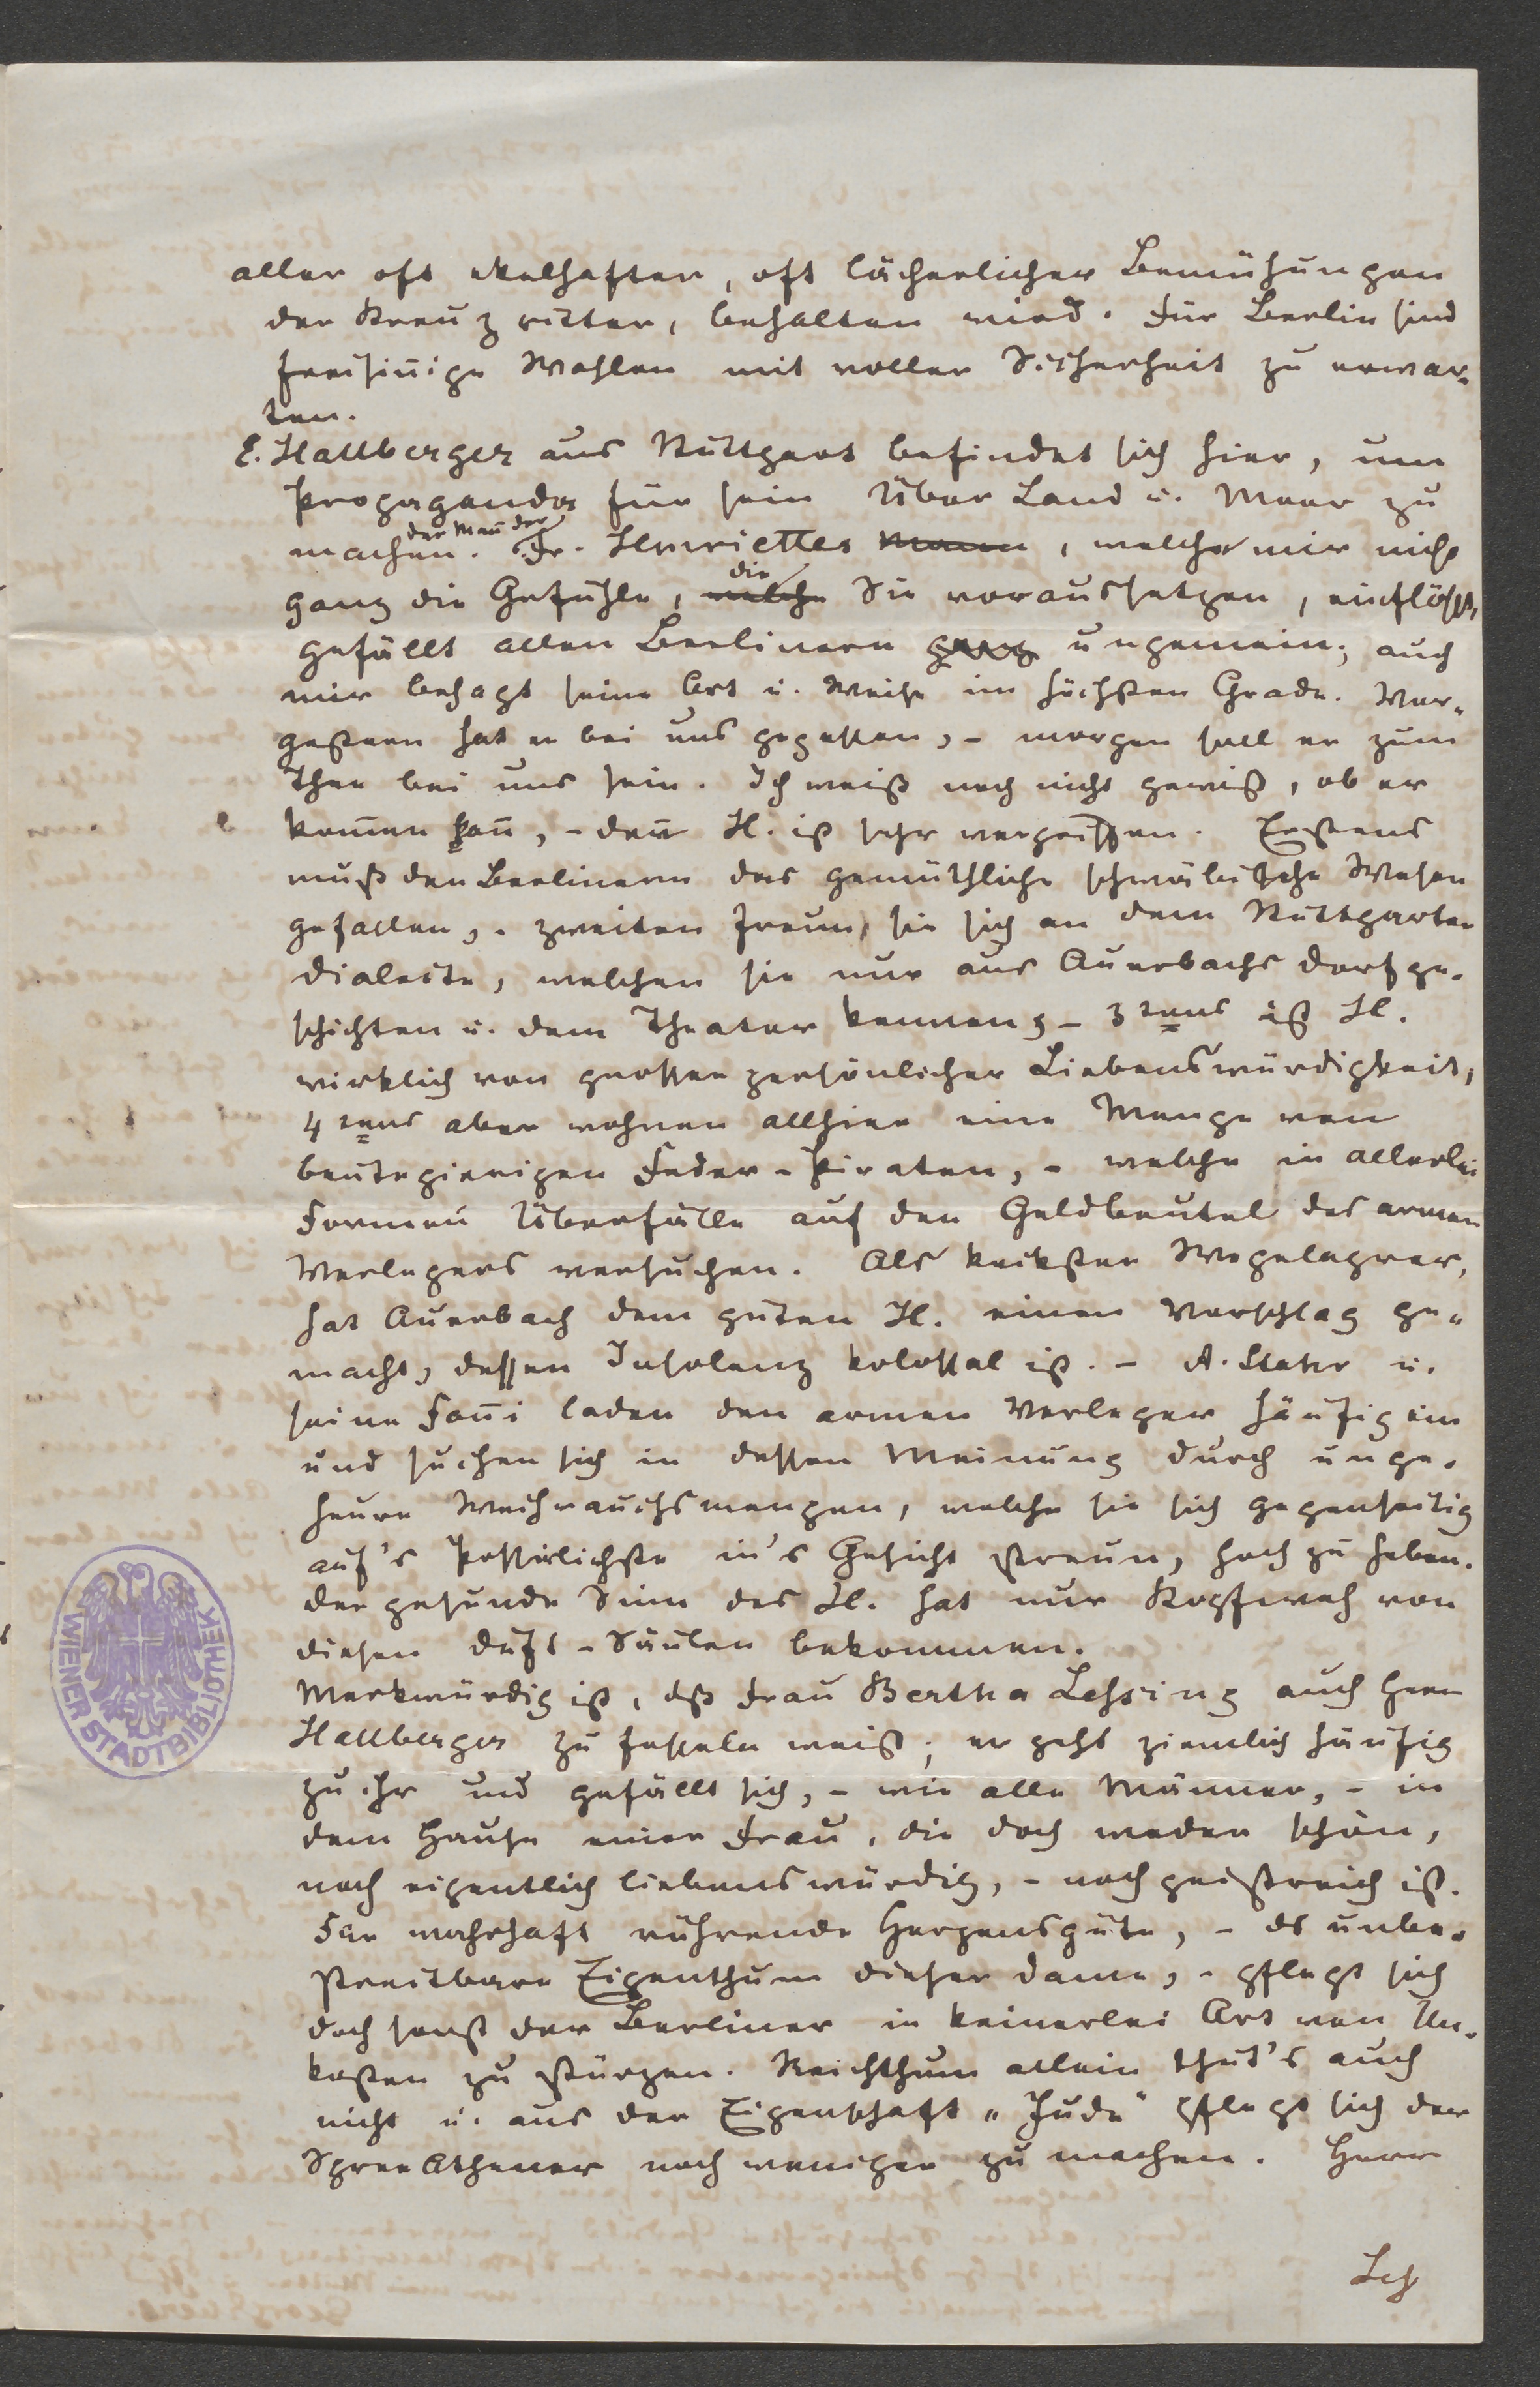 aller oft ekelhaften, oft lächerlicher Bemühungen
der Kreuzritter, behalten wird. Für Berlin sind
freisin̄ige Wahlen mit voller Sicherheit zu erwar-
ten.
E. Hallberger aus Stuttgart befindet sich hier, um
Propaganda für sein Über Land u. Meer zu
der Man̄ der
machen. Fr. Henriettes Mann, welcher mir nicht
die
ganz die Gefühle, welche Sie voraussetzen, einflößt,
gefällt allen Berlinern ganz ungemein; auch
mir behagt seine Art u. Weise im höchsten Grade. Vor-
gestern hat er bei uns gegessen, – morgen soll er zum
Thee bei uns sein. Ich weiß noch nicht gewiß, ob er
kom̄en kan̄, – den̄ H. ist sehr vergriffen. Erstens
muß den Berlinern das gemüthliche schwäbische Wesen
gefallen, – zweiten freuen sie sich an dem Stuttgarter
Dialecte, welchen sie nur aus Auerbachs Dorfge-
schichten u. dem Theater kennen; – 3tens ist H.
wirklich von grosser persönlicher Liebenswürdigkeit,
4tens aber wohnen allhier eine Menge von
beutegierigen Feder-Piraten, – welche in allerlei
Formen Überfälle auf den Geldbeutel des armen
Verlegers versuchen. Als keckster Wegelagrer,
hat Auerbach dem guten H. einen Vorschlag ge-
macht, dessen Insolenz kolossal ist. – A. Stahr u.
seine Fan̄i laden den armen Verleger häufig ein
und suchen sich in dessen Meinung durch unge-
heure Weihrauchsmengen, welche sie sich gegenseitig
auf's Possirlichste in's Gesicht streun, hoch zu heben.
Der gesunde Sinn des H. hat nur Kopfweh von
diesen Duft-Säulen bekommen.
Merkwürdig ist, dß Frau Bertha Lehsing auch Herrn
Hallberger zu fesseln weiß; er geht ziemlich häufig
zu ihr und gefällt sich, – wie alle Männer, – in
dem Hause einer Frau, die doch weder schön,
noch eigentlich liebenswürdig, – noch geistreich ist.
Für wahrhaft rührende Herzensgüte, – ds unbe-
streitbare Eigenthum dieser Dame, – pflegt sich
doch sonst der Berliner in keinerlei Art von Un-
kosten zu stürzen. Reichthum allein thut's auch
nicht u. aus der Eigenschaft „Jude" pflegt sich der
SpreeAthener noch weniger zu machen. Herr
Leh
WIENER STADTBIBLIOTHEK